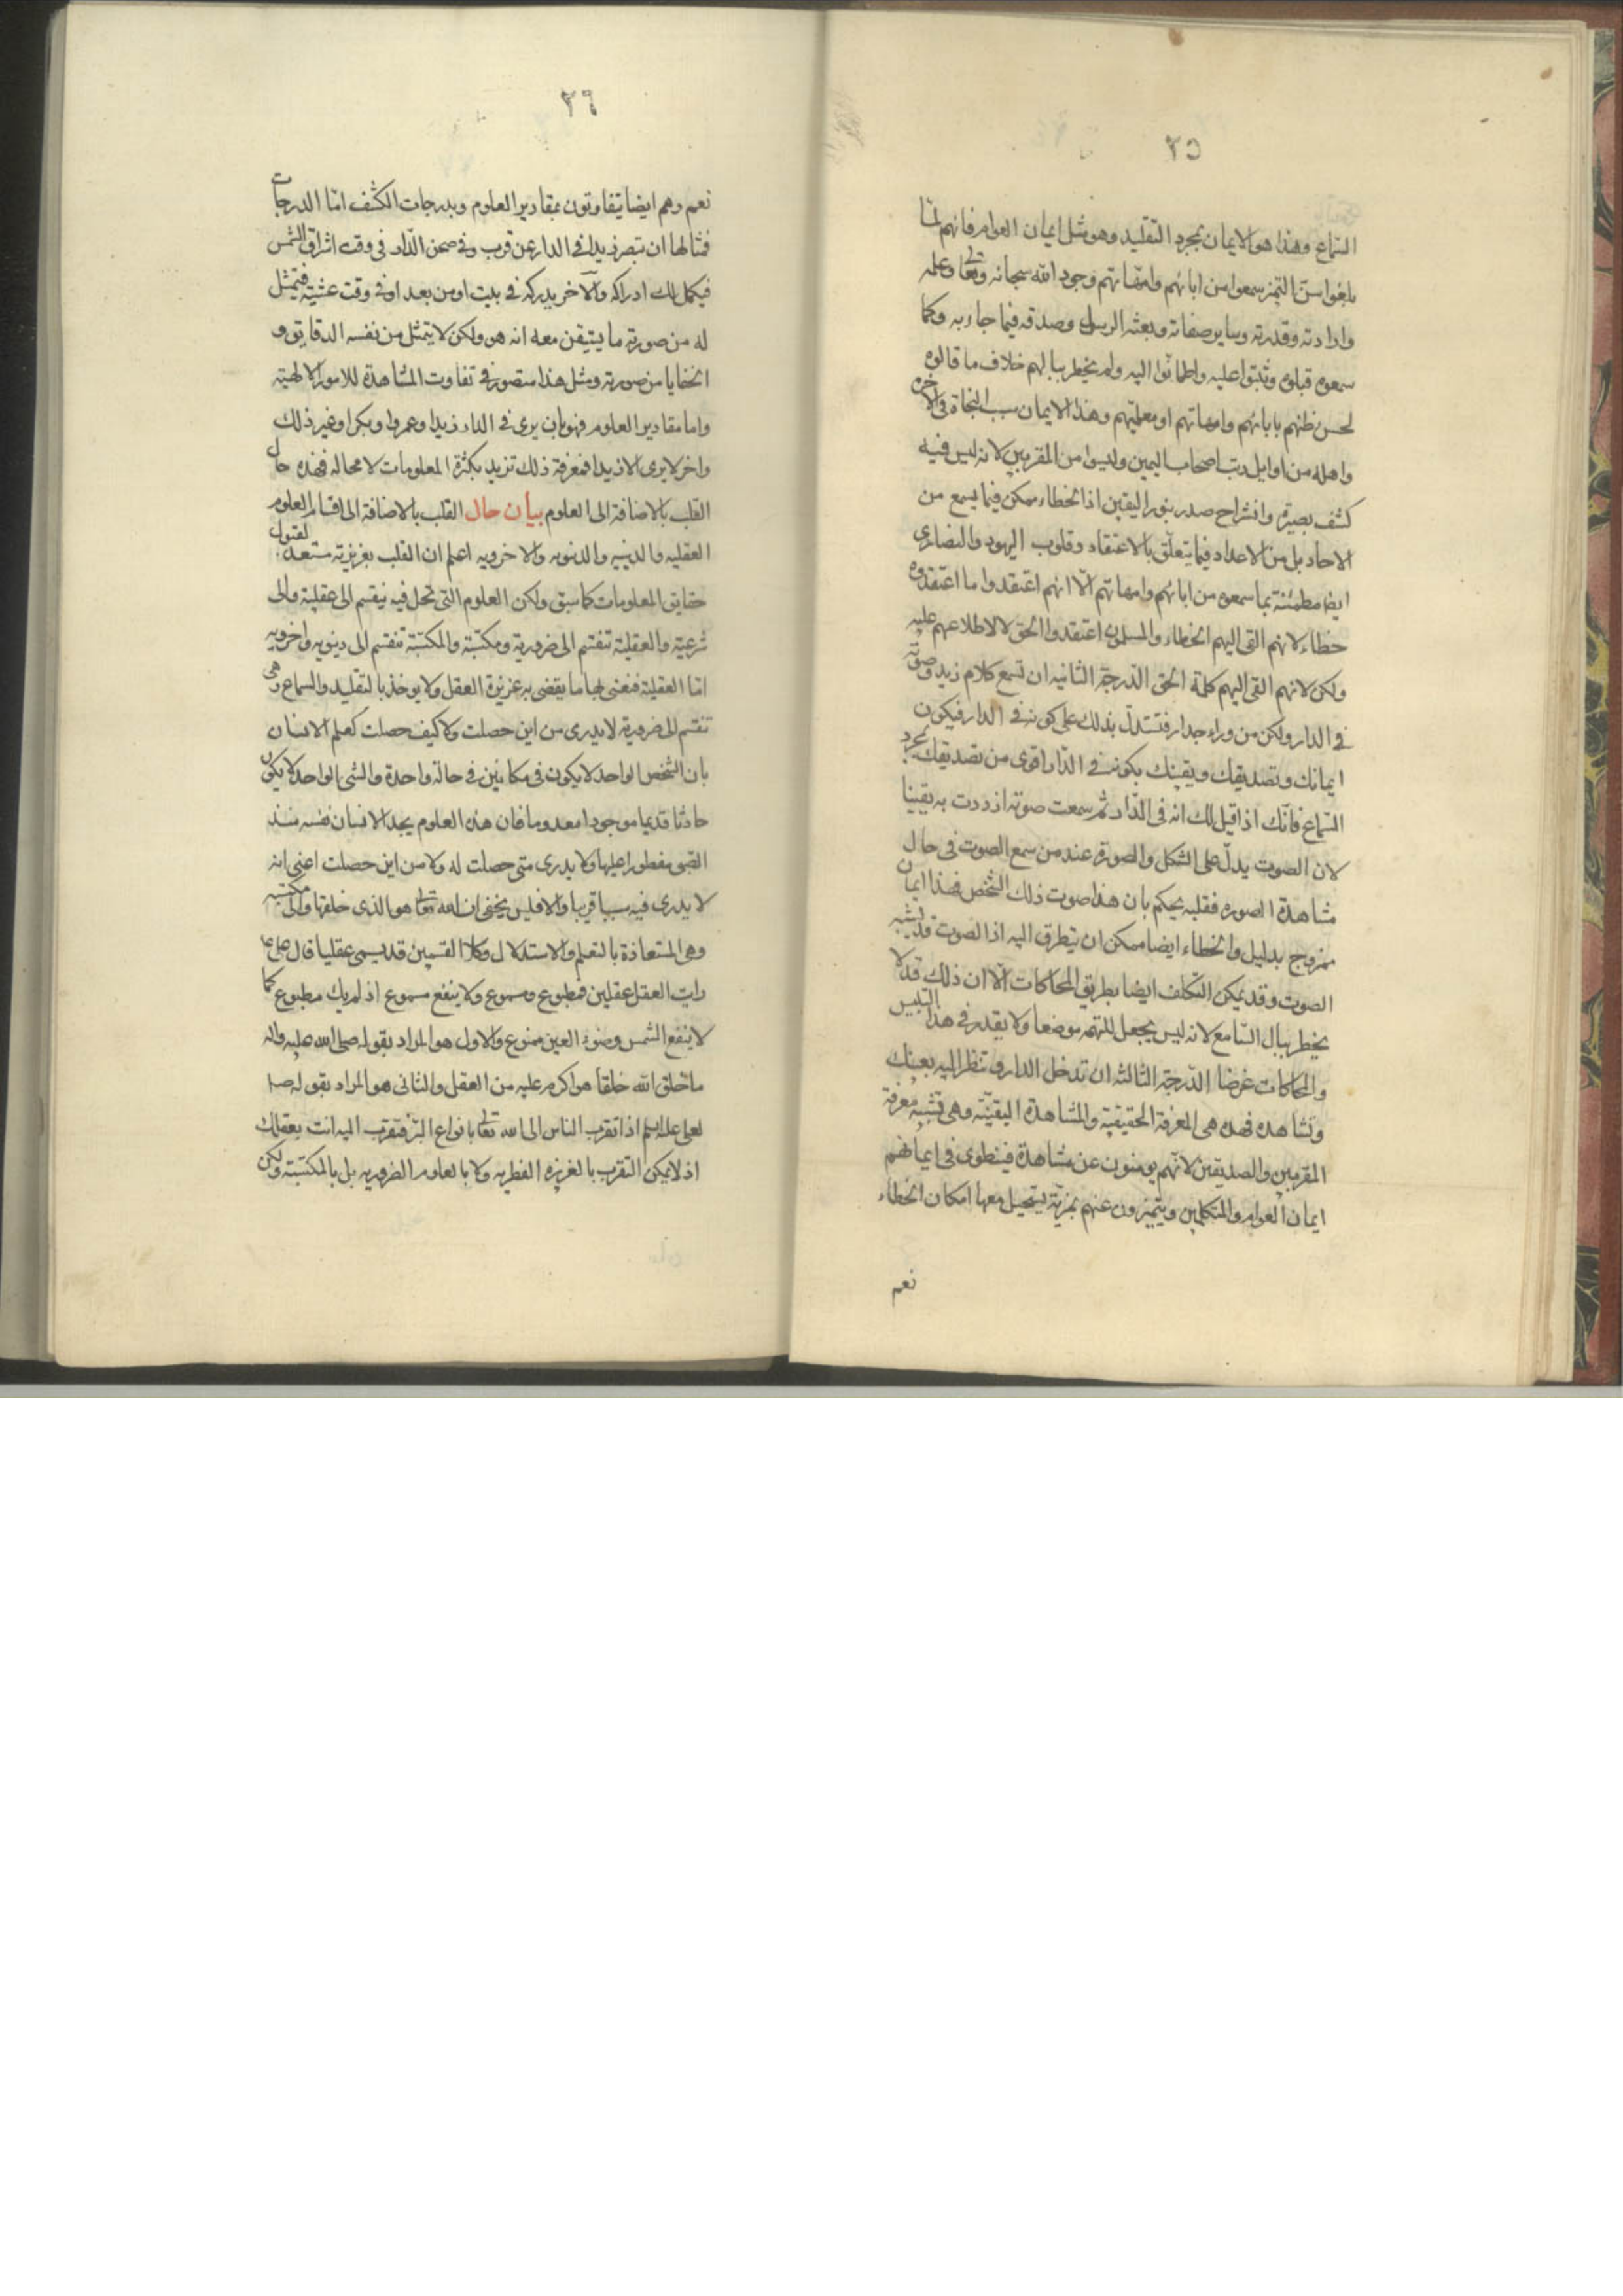 ٢٥
السماع وهذا هو الايمان بمجرد التقليد وهو مثل ايمان العوام فانهم لمّا
بلغوا سنّ التميز سمعوا من ابائهم وامّهاتهم وجود الله سبحانه وتعا وعلمه
وارادته وقدرته وساير صفاته وبعثه الرسل وصدقه فيما جاء به وكما
سمعوه قبلوه وثبتوا عليه واطمانّوا اليه ولم يخطر ببالهم خلاف ما قالوه
لحسن ظنهم بابائهم وامهاتهم او معلميهم وهذا الايمان سبب النجاة فى الاخره
واهله من اوايل رتب اصحاب اليمين وليسوا من المقربين لانه ليس فيه
كشف بصيرة وانشراح صدر بنور اليقين اذ الخطاء ممكن فيما يسمع من
الاحاد بل من الاعداد فيما يتعلّق بالاعتقاد وقلوب اليهود والنصارى
ايضا مطمئنة بما سمعوه من ابائهم وامهاتهم الّا انهم اعتقدوا ما اعتقدوه
خطاء لانهم القى اليهم الخطاء والمسلمون اعتقدوا الحق لا لاطلاعهم عليه
ولكن لانهم القى اليهم كلمة الحق الدّرجة الثانيه ان تسمع كلام زيد وصوته
فى الدار ولكن من وراء جدار فتستدلّ بذلك على كونه فى الدار فيكون
ايمانك وتصديقك ويقينك بكونه فى الدّار اقوى من تصديقك بمجرد
السّماع فانّك اذا قيل لك انه فى الدّار ثم سمعت صوته ازددت به يقينا
لان الصوت يدلّ على الشكل والصورة عند من سمع الصوت فى حال
مشاهدة الصوره فقلبه يحكم بان هذا صوت ذلك الشخص فهذا ايمان
ممزوج بدليل والخطاء ايضا ممكن ان يتطرق اليه اذ الصوت قد يشبه
الصوت وقد يمكن التكلف ايضا بطريق المحاكات الّا ان ذلك قد لا
يخطر ببال السّامع لانه ليس يجعل للتهمه موضعا ولا يقدر فى هذا التلبيس
والمحاكات غرضا الدّرجة الثالثه ان تدخل الدار وتنظر اليه بعينك
وتشاهده فهذه هى المعرفة الحقيقية والمشاهدة اليقينّة وهى تشبه معرفة
المقربين والصديقين لانّهم يومنون عن مشاهدة فينطوى فى ايمانهم
ايمان العوام والمتكلمين ويتميّزون عنهم بمزيّة يستحيل معها امكان الخطاء
نعم
٢٦
نعم وهم ايضا يتفاوتون بمقادير العلوم وبدرجات الكشف امّا الدرجات
فمثالها ان تبصر زيدا فى الدار عن قرب وفى صحن الدّار فى وقت اشراق الشمس
فيكمل لك ادراكه والآخر يدركه فى بيت او من بعد او فى وقت عشيّة فيتمثل
له من صورته ما يستيقن معه انه هو ولكن لا يتمثل من نفسه الدقايق و
الخفايا من صورته ومثل هذا متصور فى تفاوت المشاهدة للامور الالهيّة
واما مقادير العلوم فهو بان يرى فى الدار زيدا وعمروا وبكرا وغير ذلك
واخر لا يرى الا زيدا فمعرفة ذلك تزيد بكثرة المعلومات لا محاله فهذه حال
القلب بالاضافة الى العلوم بيان حال القلب بالاضافة الى اقسام العلوم
العقليه والدينيه والدنويه والاخرويه اعلم ان القلب بغريزته مستعد لقبول
حقايق المعلومات كما سبق ولكن العلوم التى تحل فيه نيقسم الى عقلية والى
شرعيّة والعقليّة تنقسم الى ضروريّة ومكتسبة والمكتسبة تنقسم الى دينويه واخرويه
امّا العقلية فنعنى بها ما يقضى به غريزة العقل ولا يوخذ بالتقليد والسماع وهى
تنقسم الى ضروريّة لا يدرى من اين حصلت وكا كيف حصلت كعلم الانسان
بان الشخص الواحد لا يكون فى مكانين فى حالة واحدة والشى الواحد لا يكون
حادثا قديما موجودا معدوما فان هذه العلوم يجد الانسان نفسه منذ
الصبى مفطورا عليها ولا يدرى متى حصلت له ولا من اين حصلت اعنى انه
لا يدرى فيه سببا قريبا والا فليس يخفى ان الله تعا هو الذى خلقها والى مكتسبه
وهى المستفادة بالتعلم والاستدلال وكلا القسمين قد يسمى عقليا قال على ع
رايت العقل عقلين فمطبوع ومسموع ولا ينفع مسموع اذ لم يك مطبوع كما
لا ينفع الشمس وضوء العين ممنوع والاول هو المراد بقوله صلى الله عليه واله
ما خلق الله خلقا هو اكرم عليه من العقل والثانى هو المراد بقوله ص
لعلى عليه السلم اذا تقرب الناس الى الله تعا بانواع البرّ فتقرب اليه انت بعقلك
اذ لا يمكن التقرب بالغريزه الفطريه ولا بالعلوم الضروريه بل بالمكتسبة ولكن